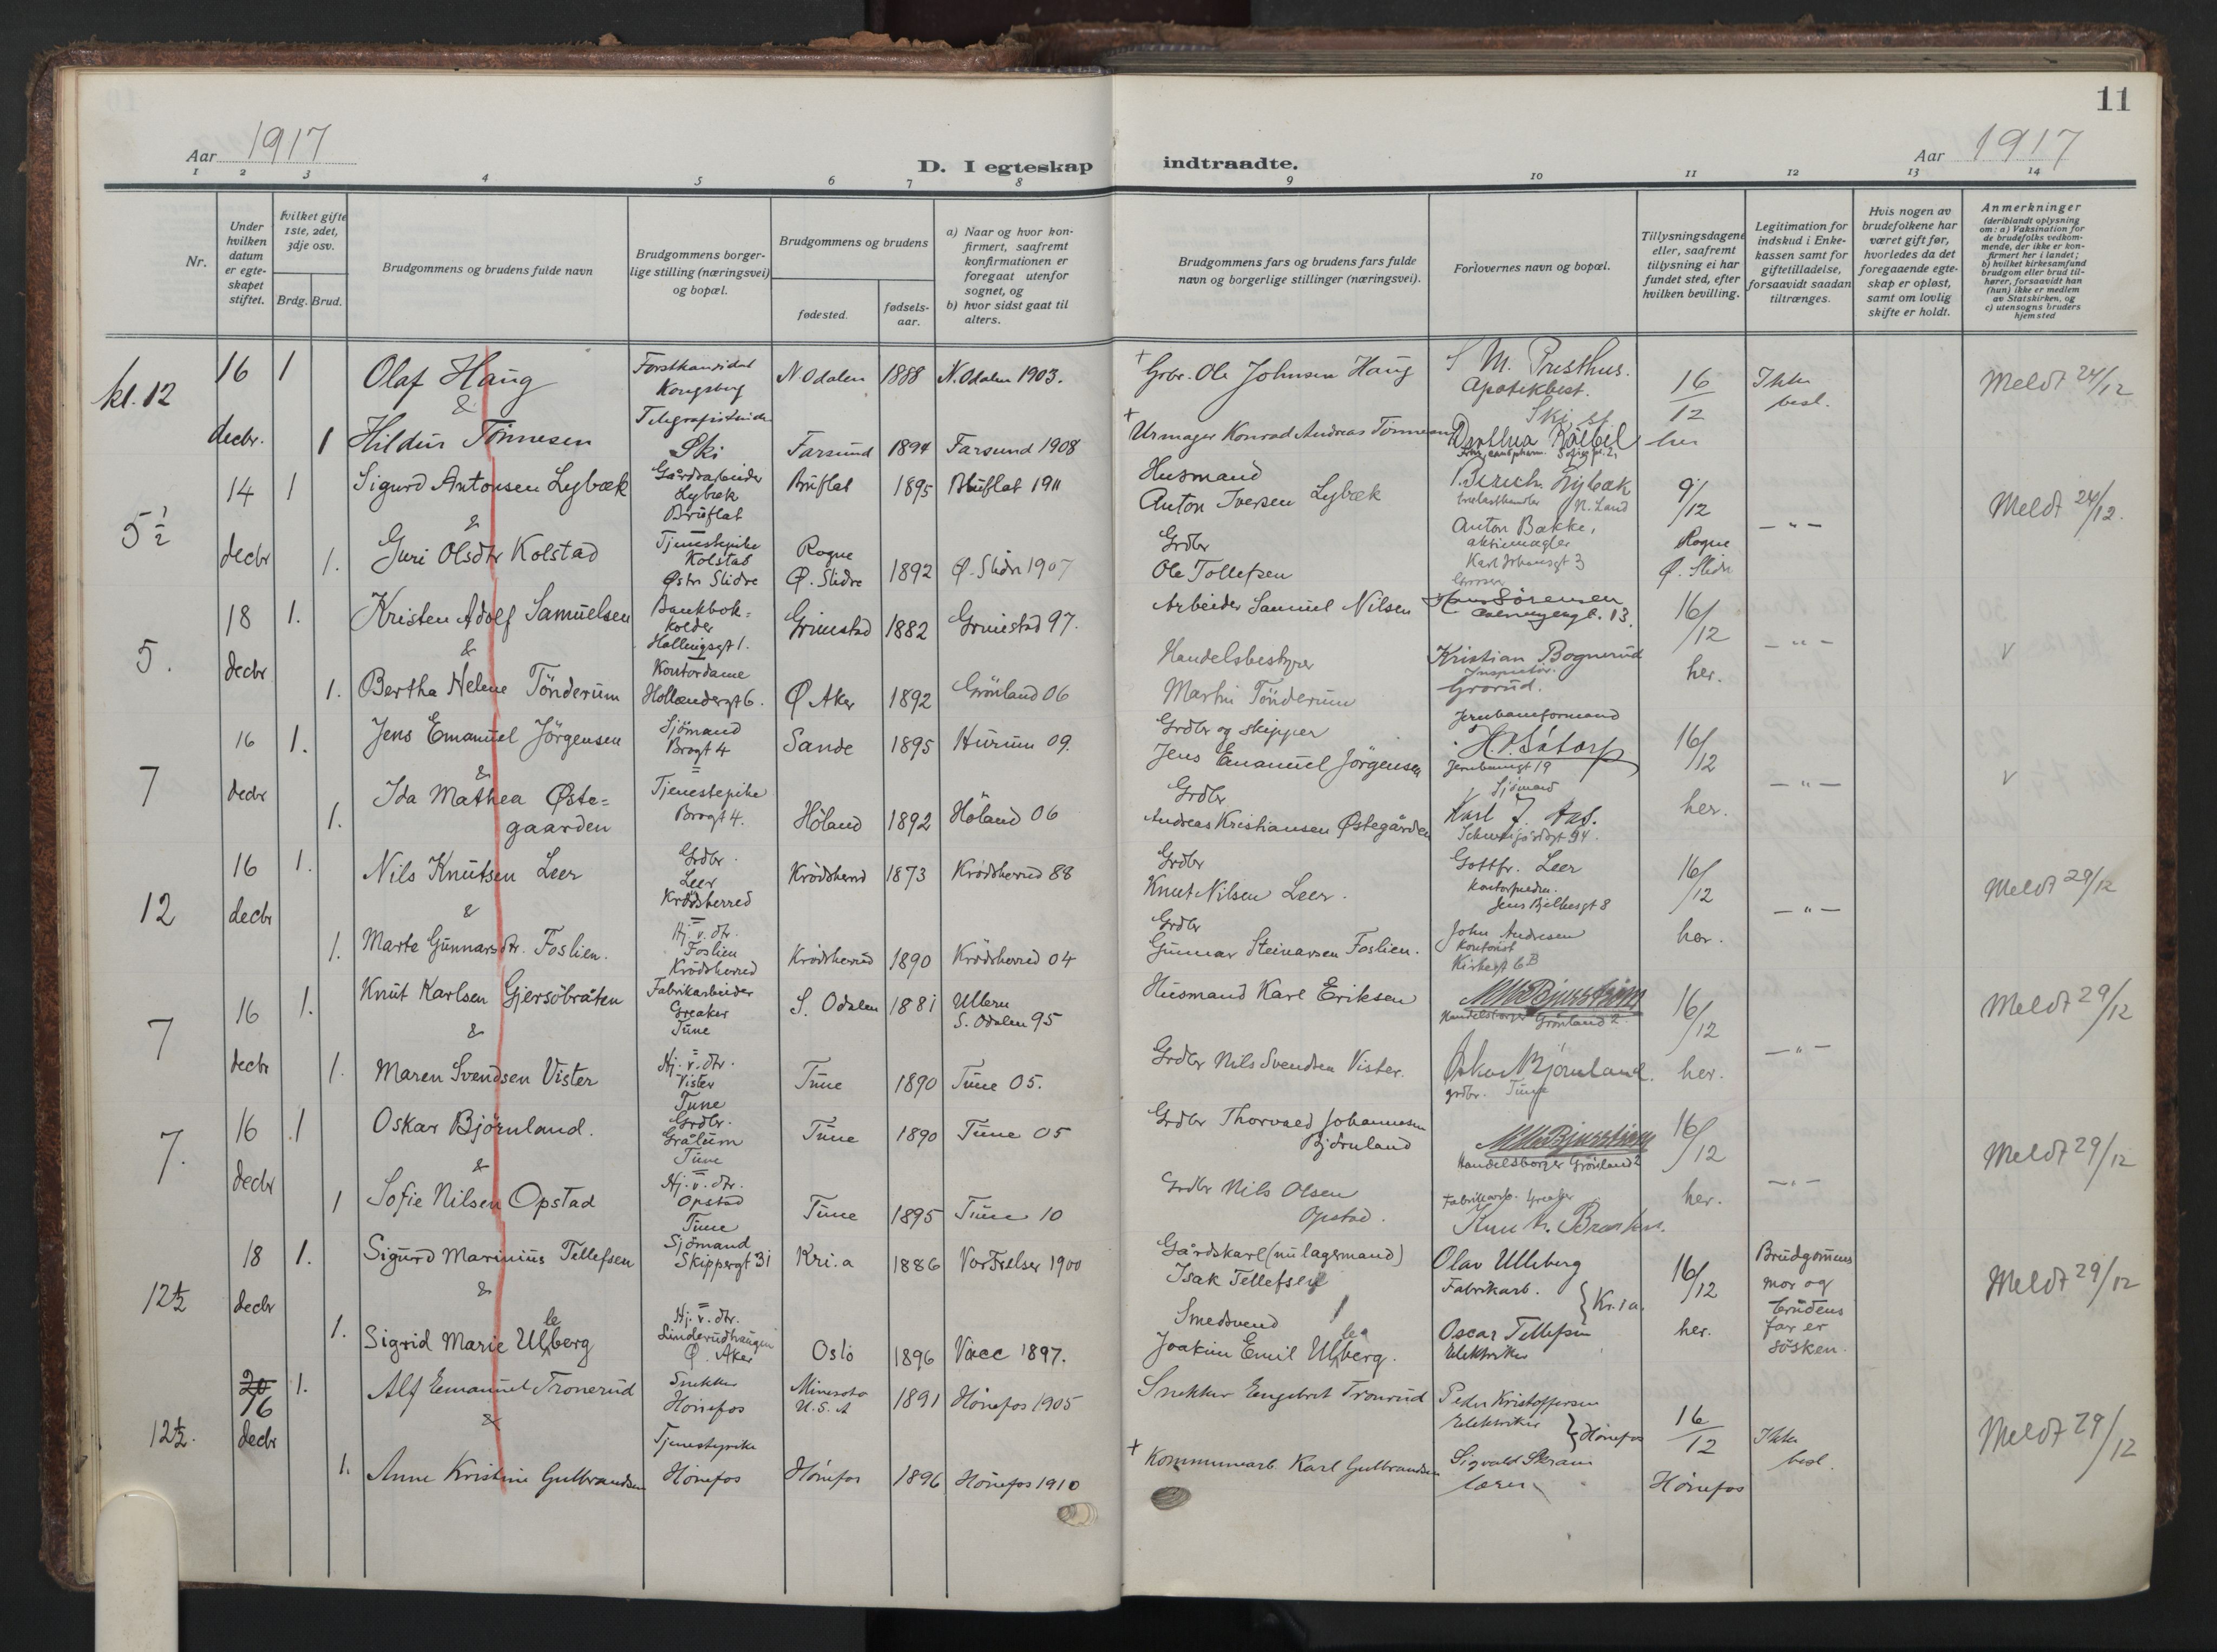 11
Aar 1917
D. I egteskap indtraadte.
Aar 1917
1 2 3 4 5 6 7 8 9 10 11 12 13 14
Nr.
Under hvilken datum er egteskapet stiftet.
Hvilket gifte 1ste, 2det, 3dje osv.
Brdg. Brud.
Brudgommens og brudens fulde navn
Brudgommens borgerlige stilling (næringsvei) og bopæl.
Brudgommens og brudens
fødested.
fødselsaar.
a) Naar og hvor konfirmert, saafremt konfirmationen er foregaat utenfor sognet, og
b) hvor sidst gaat til alters.
Brudgommens fars og brudens fars fulde navn og borgerlige stillinger (næringsvei).
Forlovernes navn og bopæl.
Tillysningsdagene eller, saafremt tillysning ei har fundet sted, efter hvilken bevilling.
Legitimation for indskud i Enkekassen samt for giftetilladelse, forsaavidt saadan tiltrænges.
Hvis nogen av brudefolkene har været gift før, hvorledes da det foregaaende egteskap er opløst, samt om lovlig skifte er holdt.
Anmerkninger
(deriblandt oplysning om: a) Vaksination for de brudefolks vedkommende, der ikke er konfirmert her i landet;
b) hvilket kirkesamfund brudgom eller brud tilhører, forsaavidt han (hun) ikke er medlem av Statskirken, og
c) utensogns bruders hjemsted
kl. 12
16 decbr. 1 Olaf Haug Forstkandidat Kongsberg N Odalen 1888 N. Odalen 1903. + Grbr. Ole Johnsen Haug S M. Presthus. Apotekbest. Ski st 16/12 her Ikke besl. Meldt 24/12
&
1 Hildur Tönnesen Telegrafistinde Ski Farsund 1894 Farsund 1908 + Urmager Konrad Andreas Tönnesen
5 1/2
14 decbr 1 Sigurd Antonsen Lybæk Gårdsarbeider Lybæk Bruflat Bruflat 1895 Bruflat 1911 Husmand Anton Iversen Lybæk Lybæk N. Land 9/12 Rogne Ø. Slidre — " — Meldt 24/12.
&
1. Guri Olsdtr Kolstad Tjenestepike Kolstad Østr Slidre Rogne Ø. Slidre 1892 Ø. Slidr 1907 Grdbr Ole Tollefsen Anton Bakke, aktiemægler Karl Johansgt 3
5.
18 decbr 1. Kristen Adolf Samuelsen Bankbokholder Hollingsgt 1. Grimstad 1882 Grimstad 97. Arbeider Samuel Nilsen Sörensen 13. 16/12 her. — " — v
&
1. Bertha Helene Tönderum Kontordame Hollendergt 6. Ø Aker 1892 Grönland 06 Handelsbestyrer Martin Tönderum Kristian Bognerud Inspektör. Grorud.
7
16 decbr 1. Jens Emanuel Jörgensen Sjömand Brogt 4 Sande 1895 Hurum 09. Grdbr og skipper Jens Emanuel Jörgensen Jernbaneformand H. P. Såtorp Jernbanegt 19 16/12 her. — " — v
&
1. Ida Mathea Østegaarden Tjenestepike Brogt 4. Höland 1892 Höland 06 Grdbr Andreas Kristiansen Østegården Sjömand Karl J. Aas. Schweigårdsgt 94.
12
16 decbr 1. Nils Knutsen Leer Grdbr. Leer Krödsherred Krödsherrd 1873 Krödsherred 88 Grdbr Knut Nilsen Leer. Gottfr. Leer Jens Bjelkesgt 8 16/12 her. — " — Meldt 29/12
&
1. Marte Gunnarsdtr. Foslien. Hj. v. dtr. Foslien Krödsherred Krödsherred 1890 Krödsherred 04 Grdbr Gunnar Steinarsen Foslien. John Andresen Kontorist Kirkegt 6 B
7
16 decbr 1. Knut Karlsen Gjersöbråten Fabrikarbeider Greaker Tune S. Odalen 1881 Ullern S. Odalen 95 Husmand Karl Eriksen Handelsborger Grönland 2. 16/12 her. — " — Meldt 29/12
&
1. Maren Svendsen Vister Hj. v. dtr. Vister Tune Tune 1890 Tune 05. Grdbr Nils Svendsen Vister. Oskar Björnland. grdbr. Tune
7.
16 decbr 1 Oskar Björnland. Grdbr. Grålum Tune Tune 1890 Tune 05 Grdbr Thorvald Johannesen Björnland Handelsborger Grönland 2 16/12 her. — " — Meldt 29/12
&
1 Sofie Nilsen Opstad Hj. v. dtr. Opstad Tune Tune 1895 Tune 10 Grdbr Nils Olsen Opstad. Fabrikarb. Greaker
12 1/2
18 decbr 1. Sigurd Marinius Tellefsen Sjömand Skippergt 31 Kri.a 1886 Vor Frelser 1900 Gårdskarl (nu lagermand) Isak Tellefsen Olav Ulleberg Fabrikarb. Kr.ia. 16/12 her. Brudgommens mor og brudens far er sösken. Meldt 29/12
&
1. Sigrid Marie Ulleberg Hj. v. dtr. Linderudhaugen Ø. Aker Oslo 1896 Vacc 1897. Smedsvend Joakim Emil Ulleberg. Oscar Tellefsen Elektriker
12 1/2.
20 16 decbr 1. Alf Emanuel Tronerud Snekker Hönefos Minesota U. S. A 1891 Hönefos 1905 Snekker Engebret Tronrud Peder Kristoffersen Elektriker Hönefos 16/12 Hönefos Ikke besl. Meldt 29/12
&
1. Anne Kristine Gulbrandsen Tjenestepike Hönefos Hönefos 1896 Hönefos 1910 + Kommunearb. Karl Gulbrandsen Sigvald Skram lærer